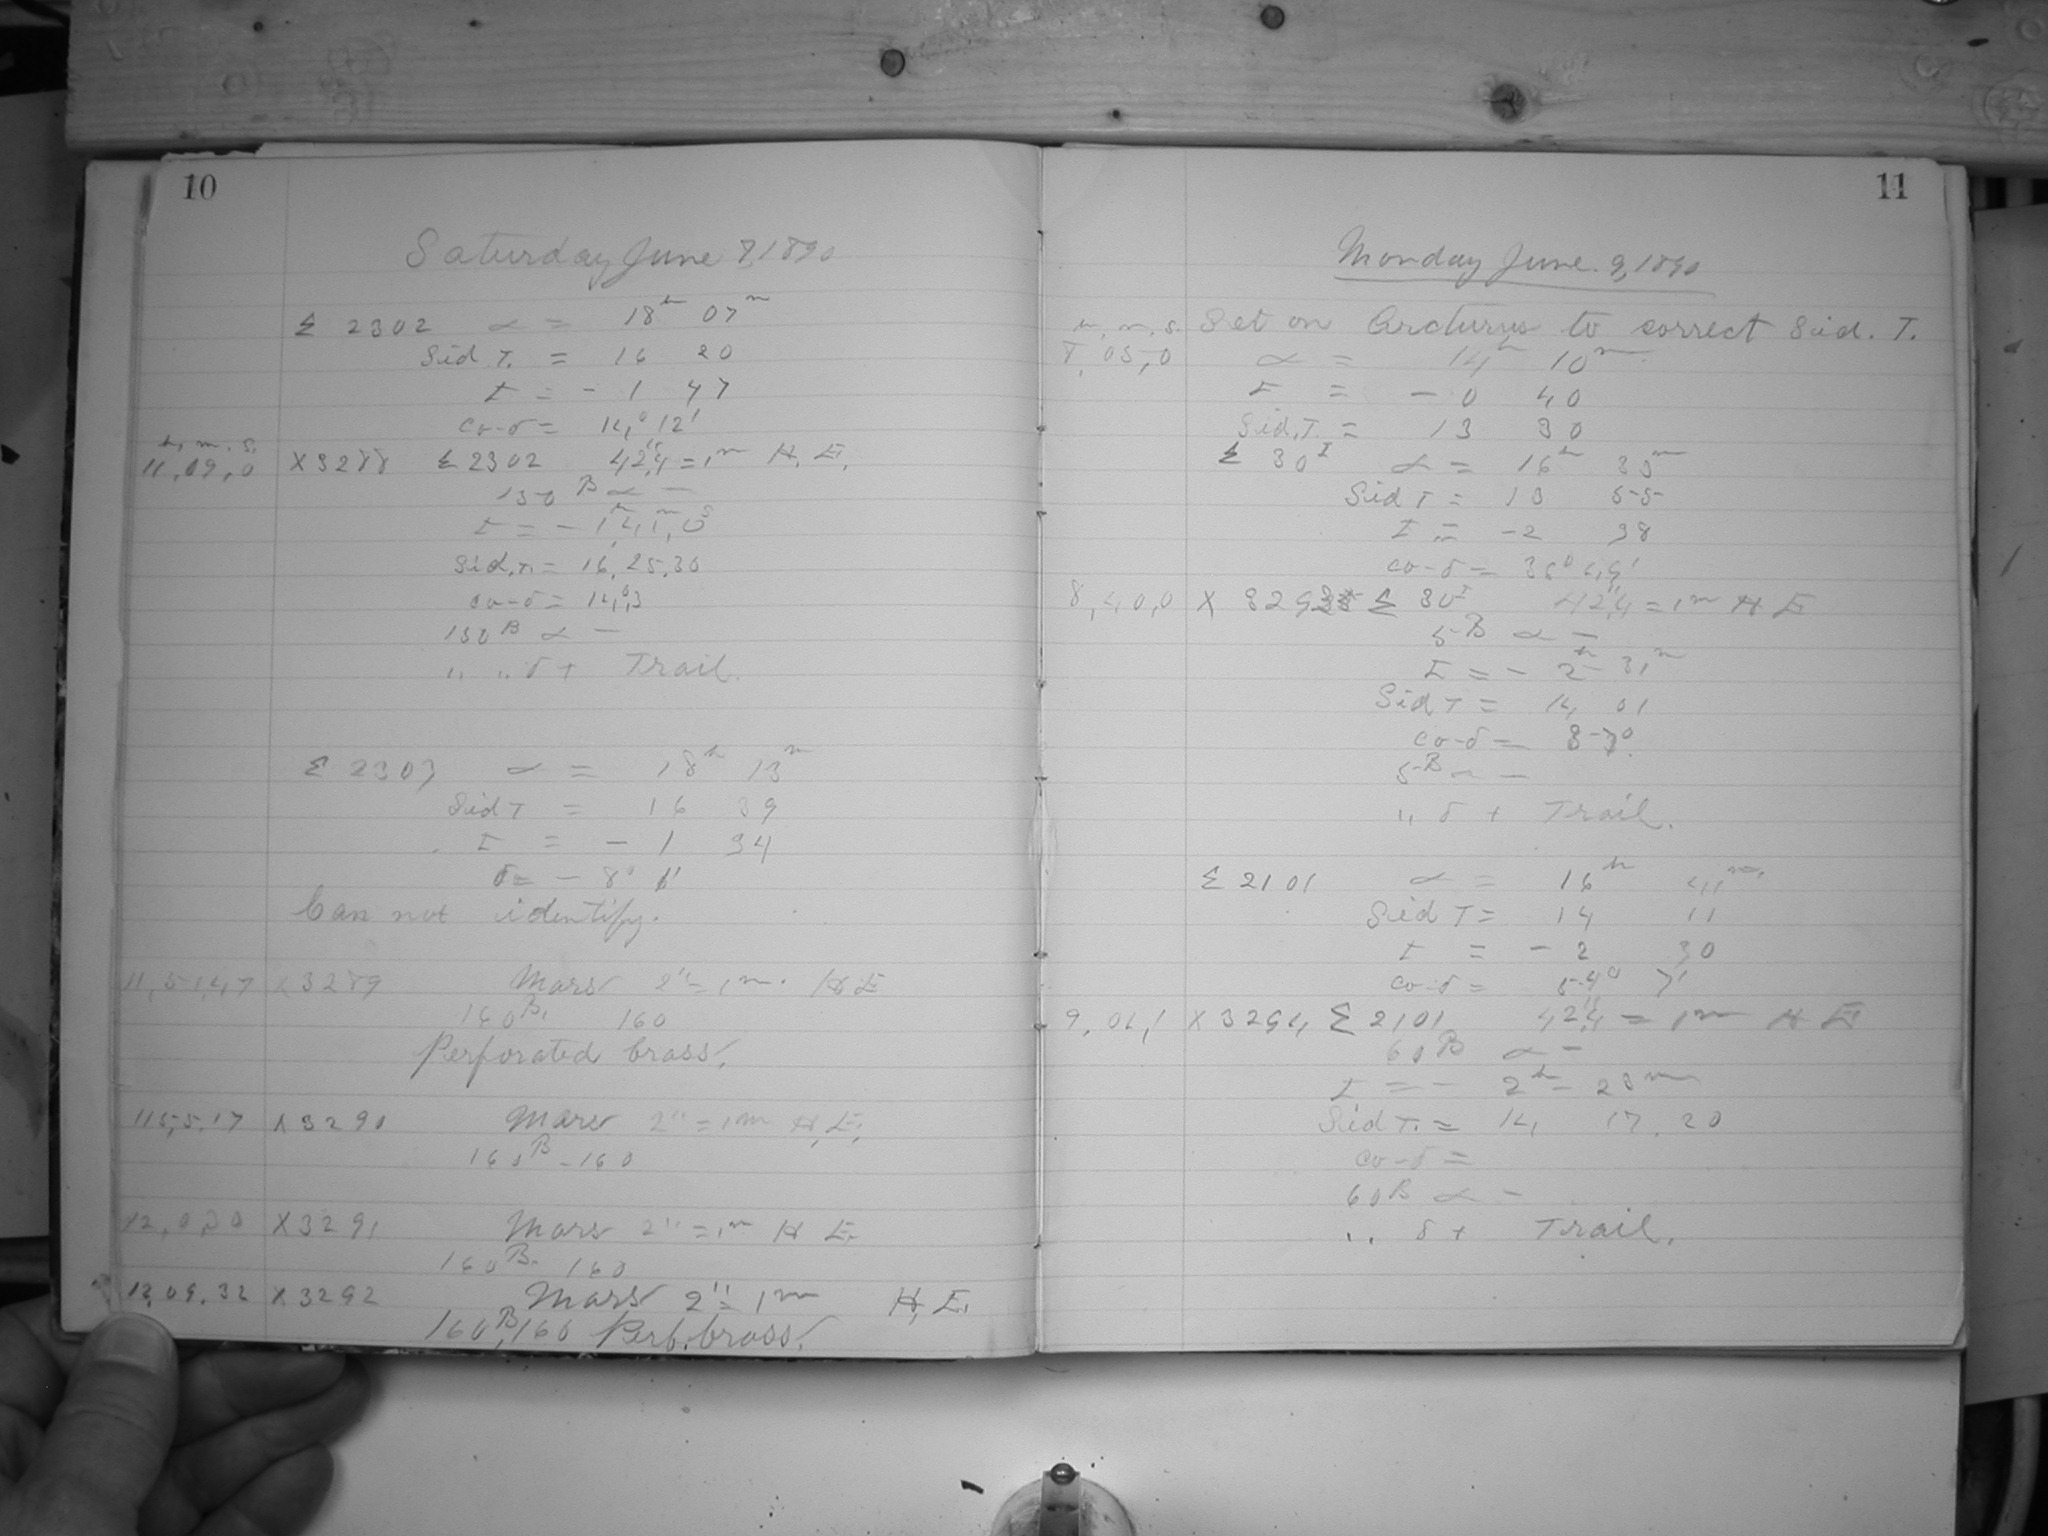 10
Saturday June 7, 1890
Σ 2302 α = 18h 07m
Sid. T. = 16 20
t = - 1 47
co-δ = 14° 12'
h. m. s.
11,09,0 X3288 Σ2302 42".4 = 1m H. E.
130 B α —
Sid. T. = 16, 25, 30
co-δ = 14.°3
130 B α —
" " δ + Trail.
Σ 2303 α = 18h 13m
Sid T = 16 39
t = - 1 34
δ = - 8°
Can not identify.
11,51,47 X3289 Mars 2" = 1m. H E
160B. 160
Perforated brass.
11,55,17 X3290 Mars 2" = 1m H. E.
160B - 160
12,0,30 X3291 Mars 2" = 1m H E.
160B. 160
12,09,32 X3292 Mars 2" = 1m H. E.
160B, 160 Perf. brass.
11
Monday June 9, 1890
h. m. s. Set on Arcturus to correct Sid. T.
8, 05, 0 α = 14h 10m
t = - 0 40
Sid. T. = 13 30
Σ 30 I α = 16h 33m
Sid T = 13 55
t = -2 38
co-δ =
8,40,0 X 3293 Σ 30 I 42".4 = 1m H E
5B α —
t = - 2h 31m
Sid T = 14 01
co-δ =
5B α —
" δ + Trail.
Σ 2101 α = 16h 41m
Sid T = 14 11
t = - 2 30
co-δ = 54° 7'
9, 04, 1 X3294 Σ 2101 42".4 = 1m H E
60B α —
t = - 2h 23m
Sid T. = 14 17.20
co-δ =
60B α —
" δ + Trail.